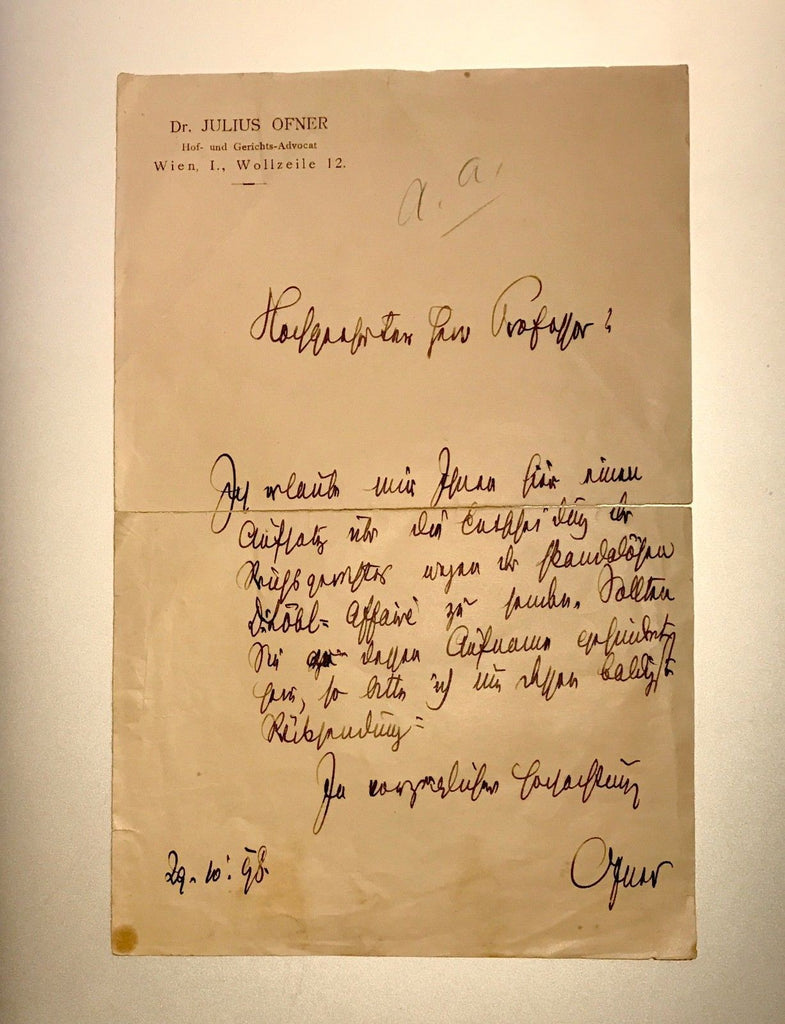 Dr. JULIUS OFNER
Hof- und Gerichts-Advocat
Wien, I., Wollzeile 12.
a. a.
Hochgeehrter Herr Professor!
Ich erlaube mir Ihnen hier einen
Aufsatz über die Entscheidung des
Reichsgerichtes wegen der skandalösen
Affaire zu senden. Sollten
Sie an dessen Aufname gehindert
sein, so bitte ich um dessen baldigst
Rücksendung.
In vorzüglicher Hochachtung
29. 10. 98.
Ofner